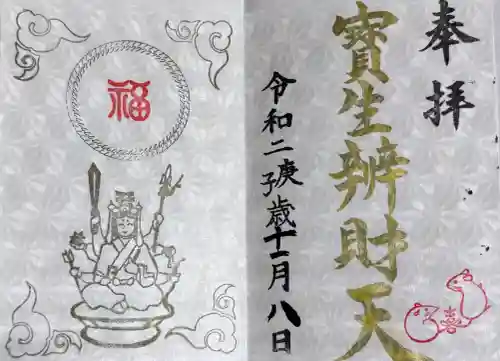 奉拝
寳生辨財天
令和二庚子歳十一月八日
喜
福